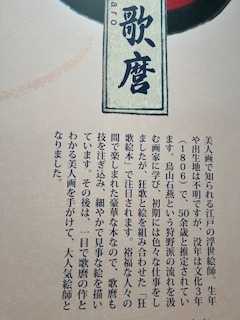 aro
歌麿
美人画で知られる江戸の浮世絵師。生年
や出生地は不明ですが、没年は文化3年
(1806)で、50余歳と推定されてい
ます。鳥山石燕という狩野派の流れを汲
む画家に学び、初期には色々な仕事をし
ましたが、狂歌と絵を組み合わせた「狂
歌絵本」で注目されます。裕福な人々の
間で楽しまれた豪華な本なので、歌麿も
技を注ぎ込み、細やかで見事な絵を描い
ています。その後は、一目で歌麿の作と
わかる美人画を手がけて、大人気絵師と
なりました。